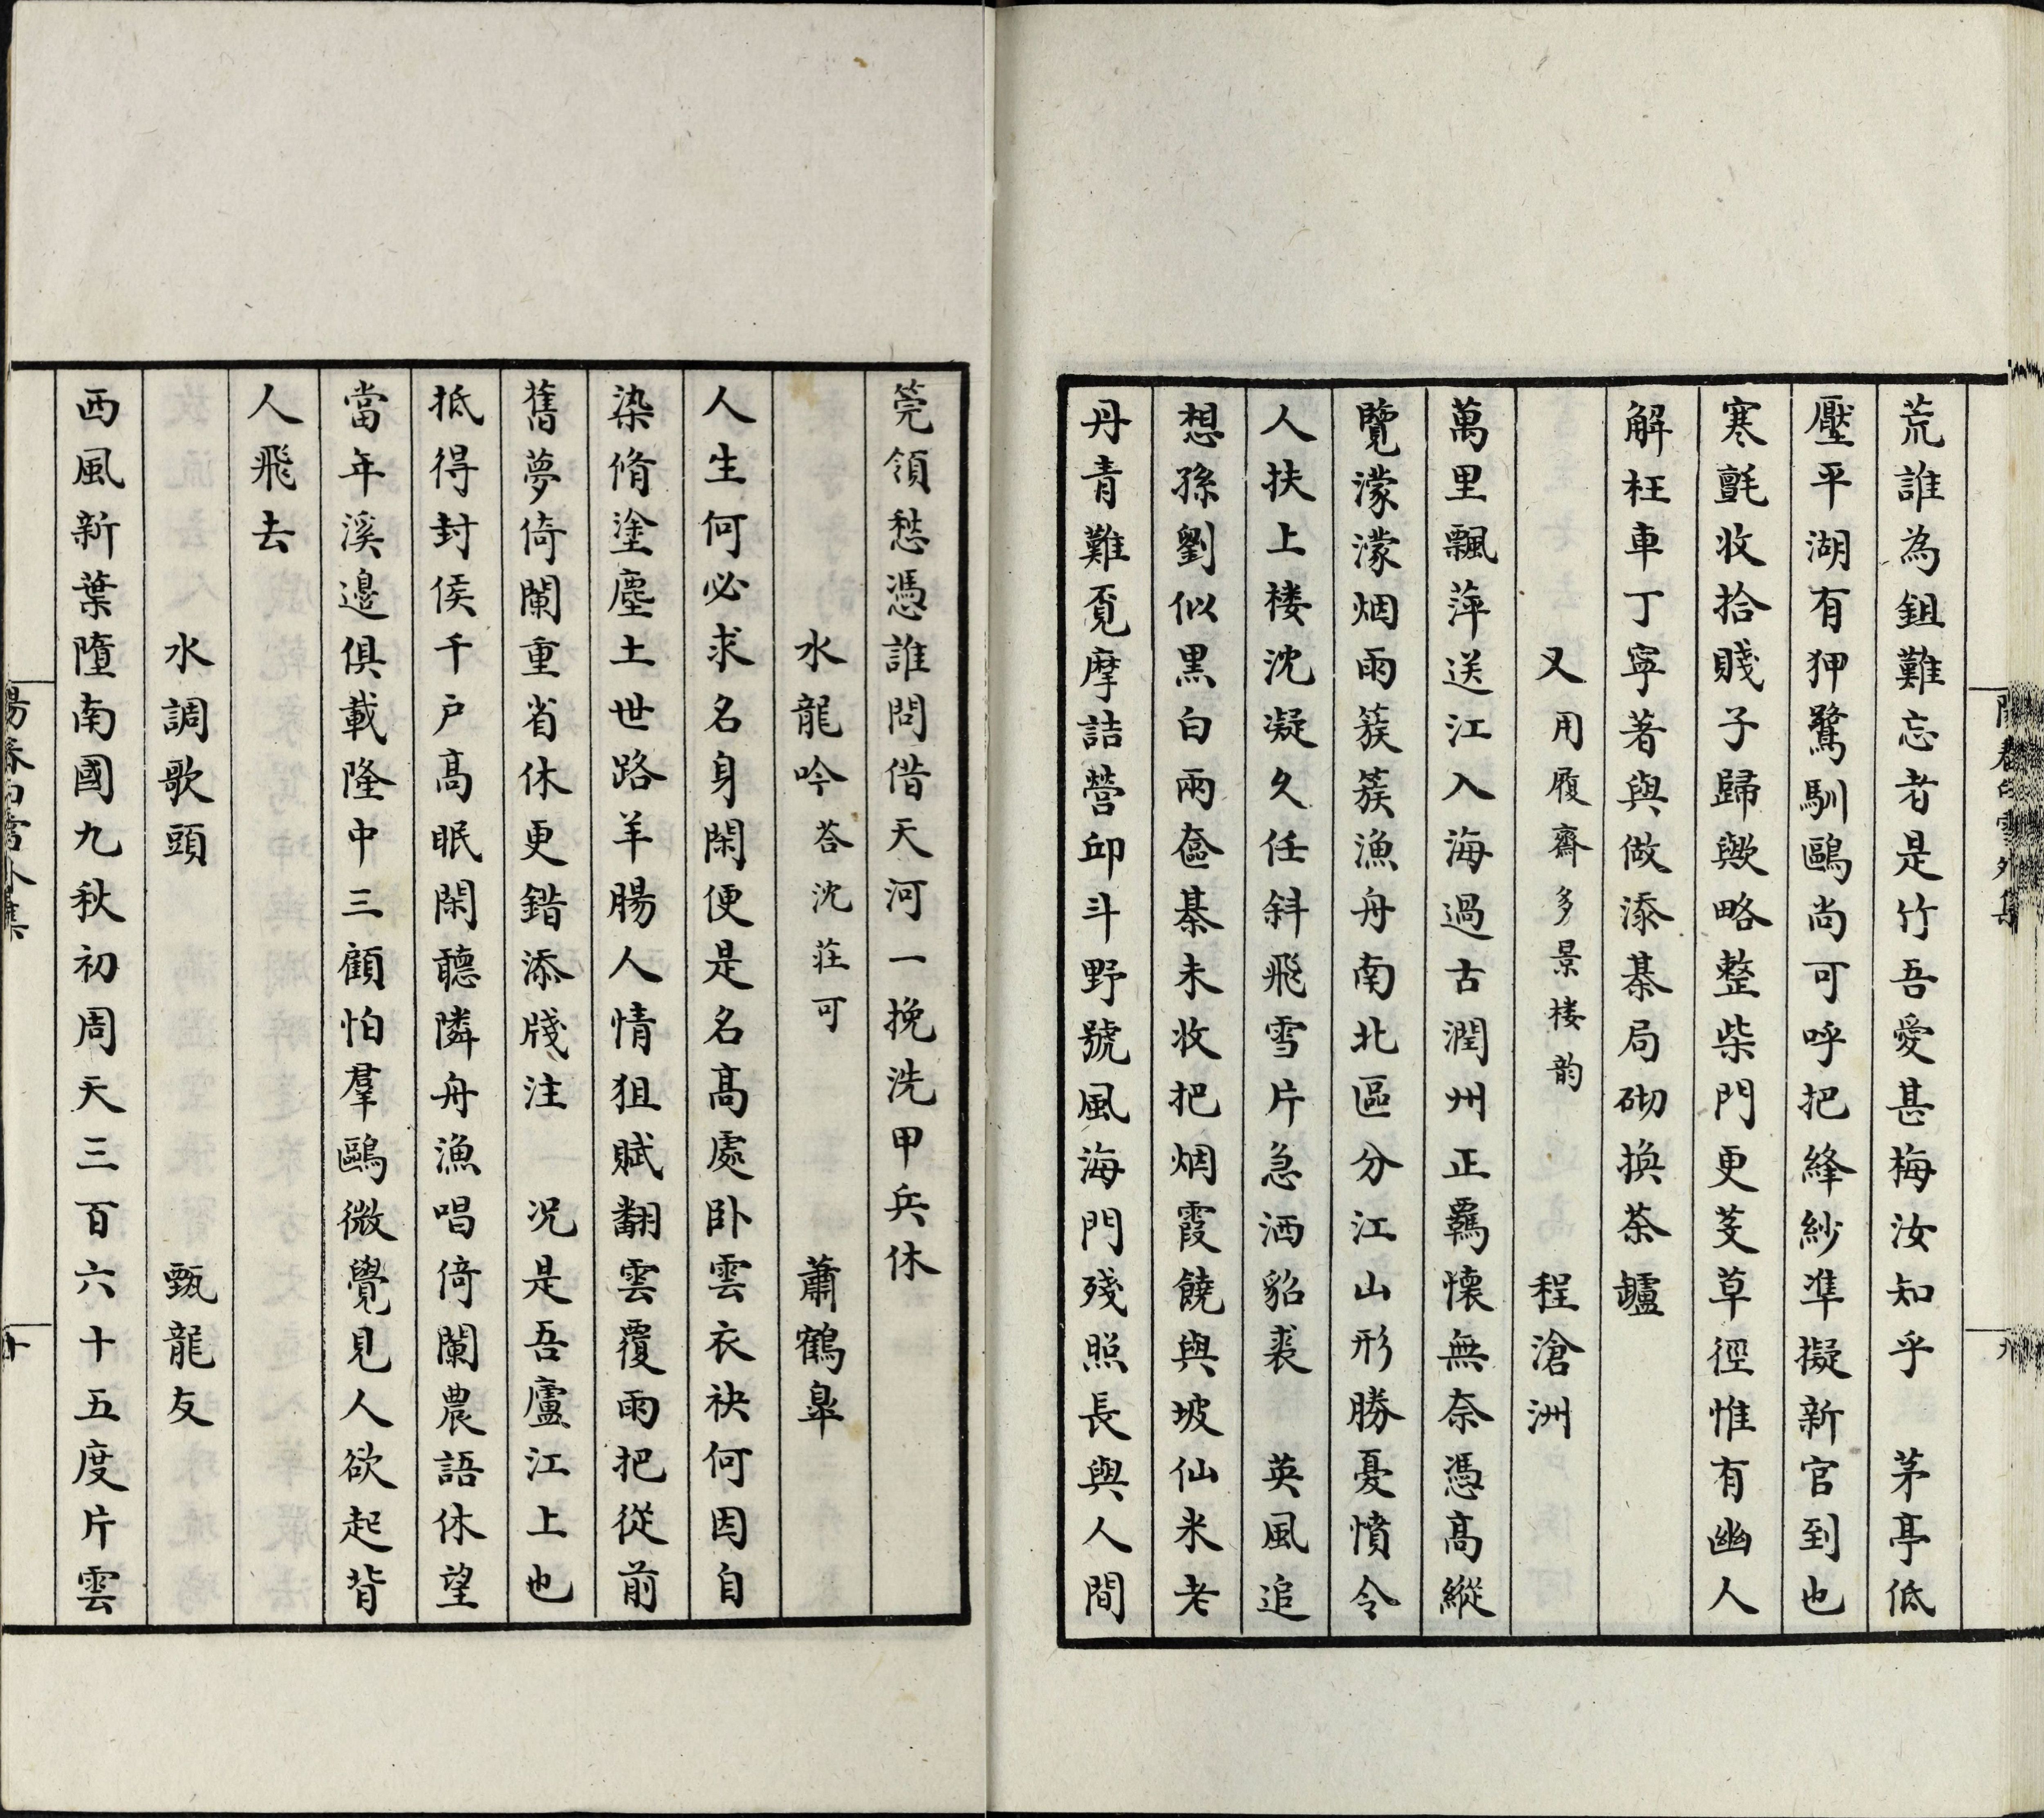 荒誰為鉏難忘者是竹吾愛甚梅汝知乎　茅亭低
壓平湖有狎鷺馴鷗尚可呼把絳紗準擬新官到也
寒氈收拾賤子歸歟略整柴門更芟草徑惟有幽人
解枉車丁寧著與做添棊局砌換茶壚
又用履齋多景楼韵　程滄洲
萬里飄萍送江入海過古潤州正羈懷無奈憑高縱
覽濛濛烟雨簇簇漁舟南北區分江山形勝憂憤令
人扶上楼沈凝久任斜飛雪片急洒貂裘　英風追
想孫劉似黑白兩奩棊未收把烟霞饒與坡仙米老
丹青難覓摩詰營邱斗野號風海門殘照長與人間
筦領愁憑誰問借天河一挽洗甲兵休
水龍吟荅沈莊可　蕭鶴皐
人生何必求名身閑便是名高處卧雲衣袂何因自
染脩塗塵土世路羊腸人情狙賦翻雲覆雨把從前
舊夢倚闌重省休更錯添牋注　况是吾廬江上也
抵得封侯千户高眠閑聽隣舟漁唱倚闌農語休望
當年溪邉俱載隆中三顧怕羣鷗微覺見人欲起背
人飛去
水調歌頭　甄龍友
西風新葉墮南國九秋初周天三百六十五度片雲